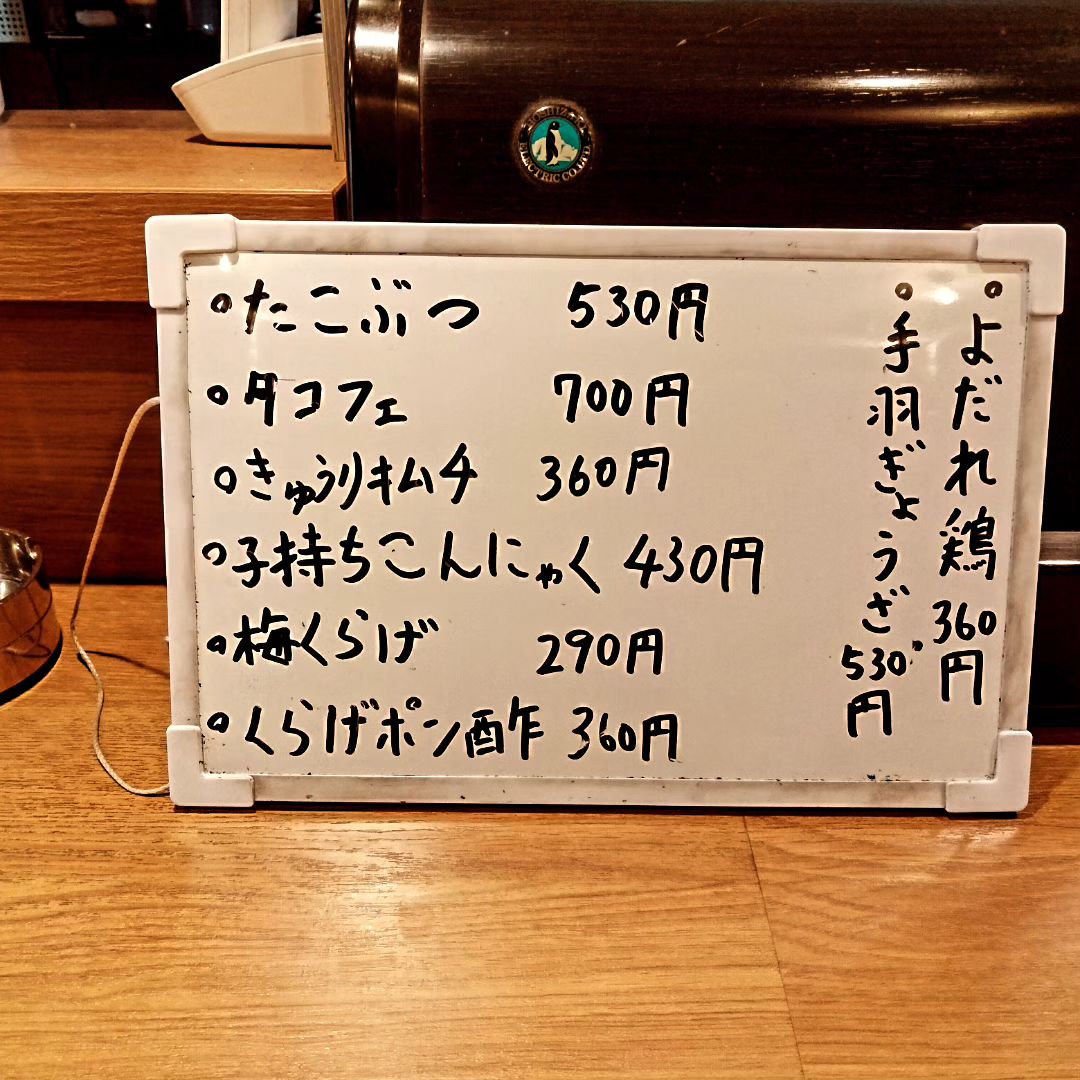 HOSHIZAKI ELECTRIC CO.LTD.
たこぶつ 530円
タコフェ 700円
きゅうりキムチ 360円
子持ちこんにゃく 430円
梅くらげ 290円
くらげポン酢 360円
よだれ鶏 360円
手羽ぎょうざ 530円